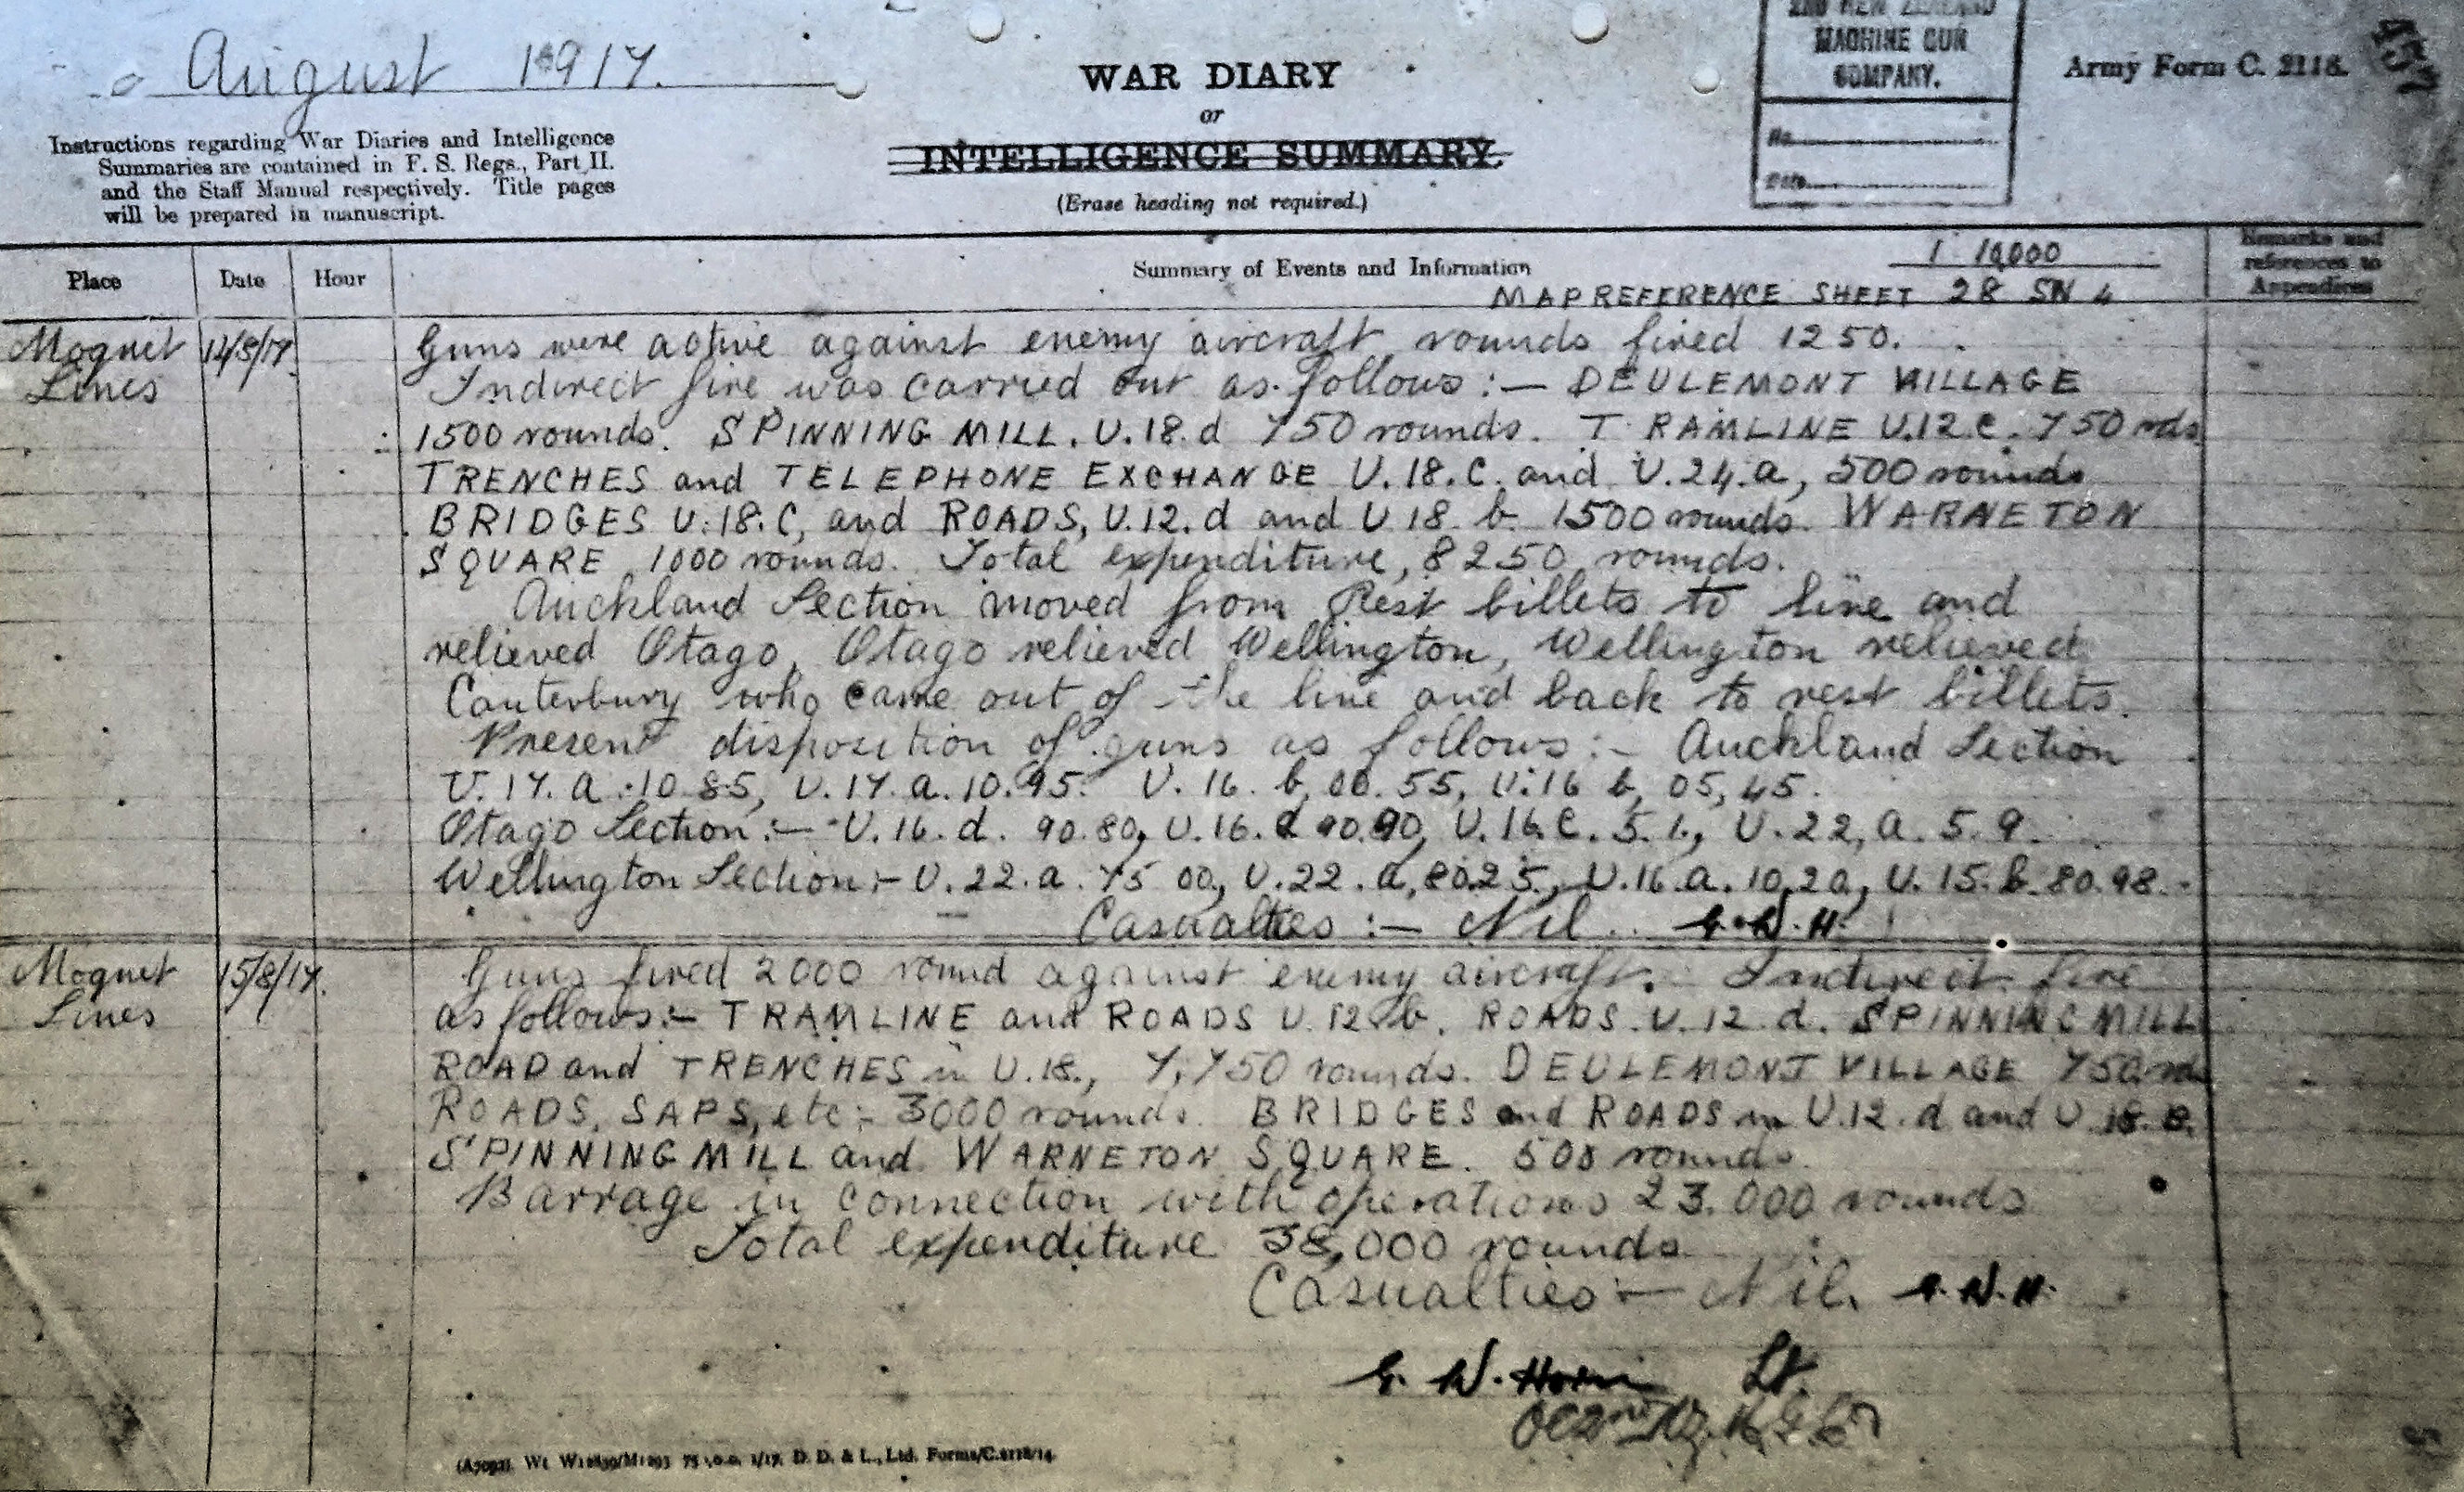 August 1917.
Instructions regarding War Diaries and Intelligence
Summaries are contained in F. S. Regs., Part II.
and the Staff Manual respectively. Title pages
will be prepared in manuscript.
WAR DIARY
or
INTELLIGENCE SUMMARY.
(Erase heading not required.)
2ND NEW ZEALAND
MACHINE GUN
COMPANY.
No.
Date
Army Form C. 2118.
457
Place
Date
Hour
Summary of Events and Information
1 10,000
MAP REFERENCE SHEET 28 SW 4
Remarks and
references to
Appendices
Moquet
Lines
14/8/17.
Guns were active against enemy aircraft, rounds fired 1250.
Indirect fire was carried out as follows :— DEULEMONT VILLAGE
1500 rounds. SPINNING MILL. U.18.d 750 rounds. TRAMLINE U.12.c. 750 rds
TRENCHES and TELEPHONE EXCHANGE U.18.C. and U.24.a, 500 rounds
BRIDGES U.18.C, and ROADS, U.12.d and U 18 b 1500 rounds. WARNETON
SQUARE 1000 rounds. Total expenditure, 8250 rounds.
Auckland Section moved from Rest billets to line and
relieved Otago, Otago relieved Wellington, Wellington relieved
Canterbury who came out of the line and back to rest billets.
Present disposition of guns as follows :- Auckland Section
U.17.a.10 85, U.17.a.10.95. U.16.b,00.55, U.16 b, 05,45.
Otago Section :— U.16.d. 90.80, U.16.d 90.90, U.16.C. 5.1., U.22,a.5.9.
Wellington Section :- U.22.a.75 00, U.22.a,80.25, U.16.a.10,20, U.15.b.80.98.
Casualties :— Nil. G.W.H.
Moquet
Lines
15/8/17.
Guns fired 2000 round against enemy aircraft. Indirect fire
as follows :- TRAMLINE and ROADS U.12.b. ROADS. U.12.d. SPINNING MILL
ROAD and TRENCHES in U.18., 7,750 rounds. DEULEMONT VILLAGE 750 rds
ROADS, SAPS, etc :- 3000 rounds. BRIDGES and ROADS in U.12.d and U.18.B.
SPINNING MILL and WARNETON SQUARE. 500 rounds.
Barrage in connection with operations 23.000 rounds
Total expenditure 38,000 rounds
Casualties :— Nil. G.W.H.
G. W. Horn Lt.
OC 2nd NZ. M.G. Coy
D. D. & L., Ltd. Forms/C.2118/14.